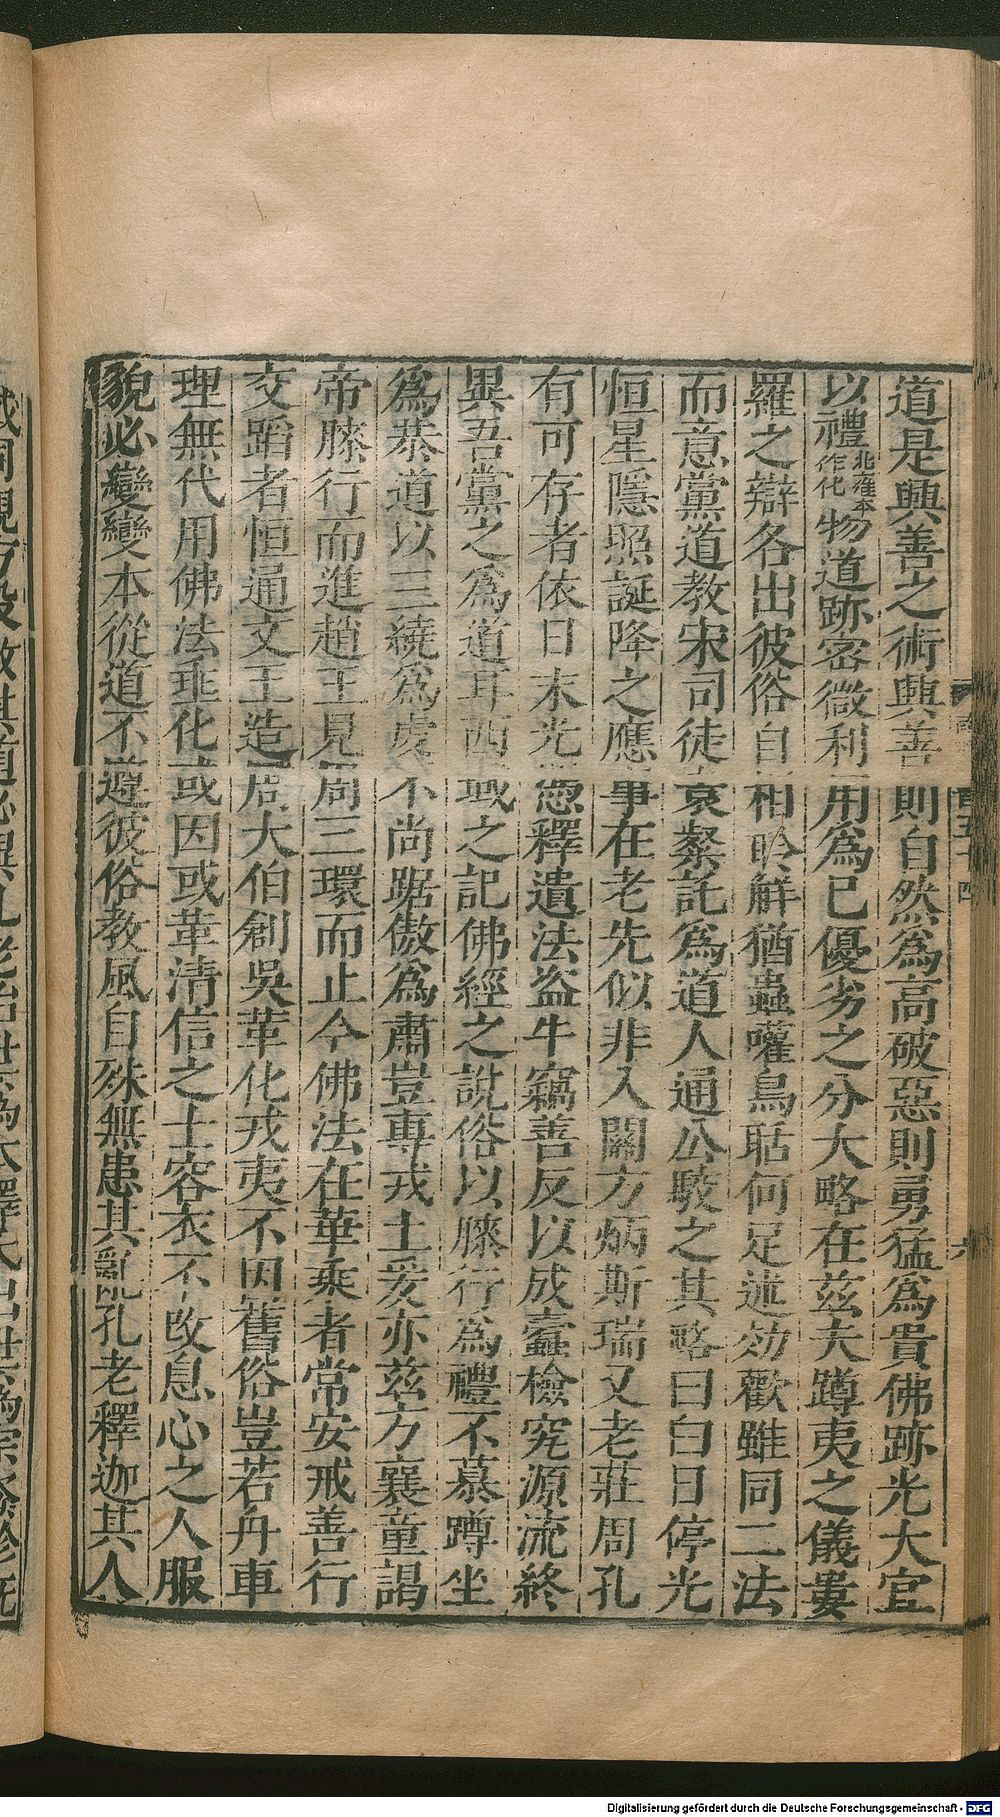 道是興善之術興善則自然為高破惡則勇猛為貴佛跡光大宜
以禮北雍本作化物道跡密微利用為已優劣之分大略在茲夫蹲夷之儀婁
羅之辯各出彼俗自相聆解猶蟲嚾鳥聒何足述効歡雖同二法
而意黨道教宋司徒袁粲託為道人通公駮之其略曰白日停光
恒星隱照誕降之應事在老先似非入關方炳斯瑞又老莊周孔
有可存者依日末光憑釋遺法盜牛竊善反以成蠹檢究源流終
異吾黨之為道耳西域之記佛經之說俗以膝行為禮不慕蹲坐
為恭道以三繞為虔不尚踞傲為肅豈專戎土爰亦茲方襄童謁
帝膝行而進趙王見周三環而止今佛法在華乘者常安戒善行
交蹈者恒通文王造周大伯創吳革化戎夷不因舊俗豈若舟車
理無代用佛法垂化或因或革清信之士容衣不改息心之人服
貌必變變本從道不遵彼俗教風自殊無患其亂孔老釋迦其人
百五十四
六
Digitalisierung gefördert durch die Deutsche Forschungsgemeinschaft - DFG